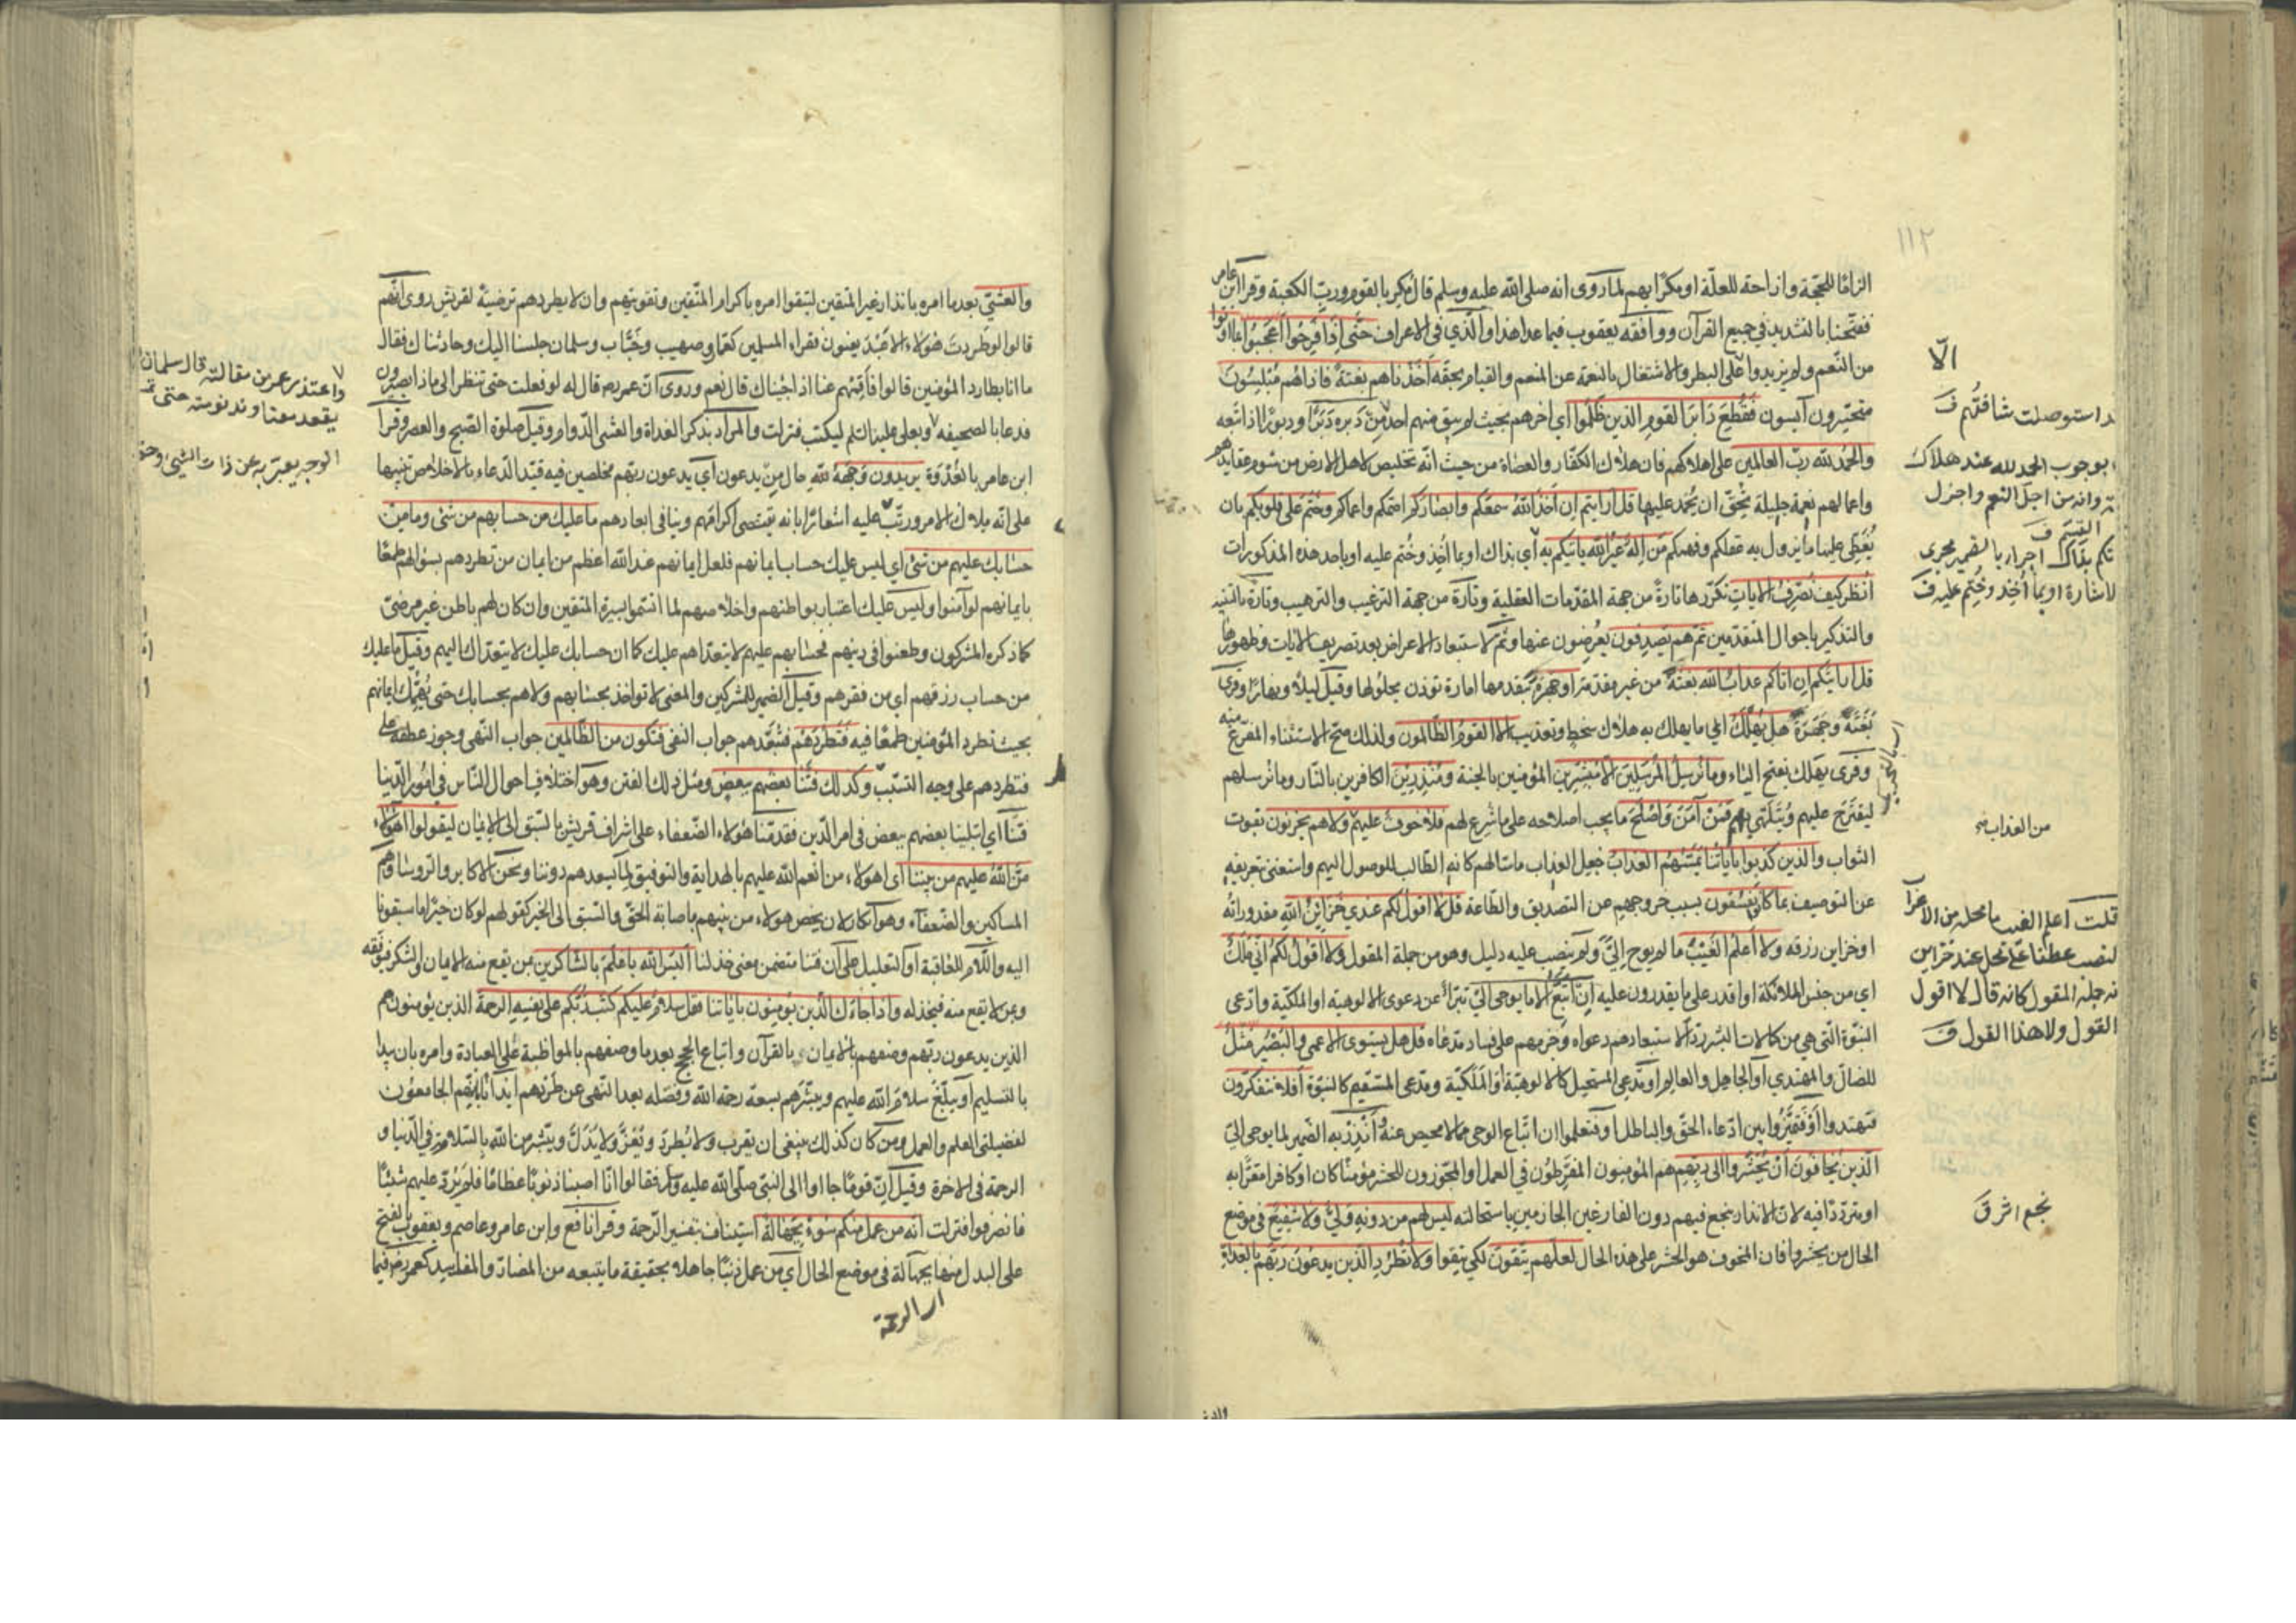 ١١٢
الزاما للحجة وازاحة للعلة او مكرا بهم لما روى انه صلى الله عليه وسلم قال مكر بالقوم ورب الكعبة وقرا ابن عامر
ففتحنا بالتشديد في جميع القرآن ووافقه يعقوب فيما عدا هذا والذي في الاعراف حتى اذا فرحوا اعجبوا بما اوتوا
من النعم ولم يزيدوا على البطر والاشتغال بالنعمة عن المنعم والقيام بحقه اخذناهم بغتة فاذا هم مبلسون
متحيرون آيسون فقطع دابر القوم الذين ظلموا اي اخرهم بحيث لم يبق منهم احد من دبره دبرا ودبورا اذا تبعه
والحمد لله رب العالمين على اهلاكهم فان هلاك الكفار والعصاة من حيث انه تخليص لاهل الارض من شوم عقايدهم
واعمالهم نعمة جليلة يحق ان يحمد عليها قل ارايتم ان اخذ الله سمعكم وابصاركم اصمكم واعماكم وختم على قلوبكم بان
يغطي عليها ما يزول به عقلكم وفهمكم من اله غير الله ياتيكم به اي بذاك او بما اخذ وختم عليه او باحد هذه المذكورات
انظر كيف نصرف الايات نكررها تارة من جهة المقدمات العقلية وتارة من جهة الترغيب والترهيب وتارة بالتنبيه
والتذكير باحوال المتقدمين ثم هم يصدفون يعرضون عنها وثم لاستبعاد الاعراض بعد تصريف الايات وظهورها
قل ارايتكم ان اتاكم عذاب الله بغتة من غير مقدمة او جهرة بتقدمها امارة توذن بحلولها وقيل ليلا ونهارا وقرئ
بغتة وجهرة هل يهلك اي ما يهلك به هلاك سخط وتعذيب الا القوم الظالمون ولذلك صح الاستثناء المفرغ منه
وقرى يهلك بفتح الياء وما نرسل المرسلين الا مبشرين المؤمنين بالجنة ومنذرين الكافرين بالنار وما نرسلهم
ليقترح عليهم ويتلهى بهم فمن آمن واصلح ما يجب اصلاحه على ما شرع لهم فلا خوف عليهم ولا هم يحزنون بفوت
الثواب والذين كذبوا باياتنا يمسهم العذاب جعل العذاب ماسا لهم كانه الطالب للوصول اليهم واستغنى بتعريفه
عن التوصيف بما كانوا يفسقون بسبب خروجهم عن التصديق والطاعة قل لا اقول لكم عندي خزاين الله مقدوراته
او خزاين رزقه ولا اعلم الغيب ما لم يوح الي ولم ينصب عليه دليل وهو من جملة المقول ولا اقول لكم اني ملك
اي من جنس الملائكة او اقدر على ما يقدرون عليه ان اتبع الا ما يوحى الي تبرأ عن دعوى الالوهية او الملكية وادعى
النبوة التي هي من كمالات البشر ردا لاستبعادهم دعواه وجزمهم على فساد مدعاه قل هل يستوى الاعمى والبصير مثل
للضال والمهتدي او الجاهل والعالم او مدعي المستحيل كالالوهية او الملكية ومدعى المستقيم كالنبوة افلا تتفكرون
فتهتدوا او فتميزوا بين ادعاء الحق والباطل او فتعلموا ان اتباع الوحى مما لا محيص عنه وانذر به الضمير لما يوحى الي
الذين يخافون ان يحشروا الى ربهم هم المؤمنون المفرطون في العمل او المجوزون للحشر مؤمنا كان او كافرا مقرا به
او مترددا فيه لان الانذار ينجع فيهم دون الفارغين الجازمين باستحالته ليس لهم من دونه ولي ولا شفيع في موضع
الحال من يحشروا فان المخوف هو الحشر على هذه الحال لعلهم يتقون لكي يتقوا ولا تطرد الذين يدعون ربهم بالغداة
الّا
استوصلت شافتهم ف
بوجوب الحمد لله عند هلاك
وانه من اجل النعم واجزل
القسم ف
بذاك اجراء بالضمير مجرى
الاشارة او بما اخذ وختم عليه ف
من العذاب
قلت اعلم الغيب ما محله من الاعراب
النصب عطفا على محل عند خزاين
جملة المقول كانه قال لا اقول
القول ولا هذا القول ف
نجع اثر ق
والعشي بعد ما امره بانذار غير المتقين ليتقوا امره باكرام المتقين وتقريبهم وان لا يطردهم ترضية لقريش روى انهم
قالوا لو طردت هؤلاء الاعبد يعنون فقراء المسلمين كعمار وصهيب وخباب وسلمان جلسنا اليك وحادثناك فقال
ما انا بطارد المؤمنين قالوا فاقمهم عنا اذا جئناك قال نعم وروى ان عمر رضه قال له لو فعلت حتى تنظر الى ماذا يصيرون
فدعا بالصحيفة وبعلي علينا السلم ليكتب فنزلت والمراد بذكر الغداة والعشى الدوام وقيل صلوة الصبح والعصر وقرأ
ابن عامر بالغدوة يريدون وجهه حال من يدعون اي يدعون ربهم مخلصين فيه قيد الدعاء بالاخلاص تنبيها
على انه ملاك الامر ورتب عليه اشعارا بانه يقتضى اكرامهم وينافي ابعادهم ما عليك من حسابهم من شئ وما من
حسابك عليهم من شئ اي ليس عليك حساب ايمانهم فلعل ايمانهم عند الله اعظم من ايمان من تطردهم بسؤالهم طمعا
بايمانهم لو آمنوا وليس عليك اعتبار بواطنهم واخلاصهم لما اتسموا بسيرة المتقين وان كان لهم باطن غير مرضى
كما ذكره المشركون وطعنوا في دينهم فحسابهم عليهم لا يتعداهم عليك كما ان حسابك عليك لا يتعداك اليهم وقيل ما عليك
من حساب رزقهم اي من فقرهم وقيل الضمير للمشركين والمعنى لا تواخذ بحسابهم ولا هم بحسابك حتى يهمك ايمانهم
بحيث تطرد المؤمنين طمعا فيه فتطردهم فتبعدهم جواب النفى فتكون من الظالمين جواب النهى وجوز عطفه على
فتطردهم على وجه التسبب وكذلك فتنا بعضهم ببعض ومثل ذلك الفتن وهو اختلاف احوال الناس في امور الدنيا
فتنا اي ابتلينا بعضهم ببعض في امر الدين فقدمنا هؤلاء الضعفاء على اشراف قريش بالسبق الى الايمان ليقولوا اهؤلاء
من الله عليهم من بيننا اي اهولاء من انعم الله عليهم بالهداية والتوفيق لما يسعدهم دوننا ونحن الاكابر والروسا وهم
المساكين والضعفاء وهو انكار لان يخص هولاء من بينهم باصابة الحق والسبق الى الخير كقولهم لو كان خيرا ما سبقونا
اليه واللام للعاقبة او للتعليل على ان فتنا متضمن معنى خذلنا اليس الله باعلم بالشاكرين بمن يقع منه الايمان والشكر فيوفقه
وبمن لا يقع منه فيخذله واذا جاءك الذين يؤمنون باياتنا فقل سلام عليكم كتب ربكم على نفسه الرحمة الذين يؤمنون هم
الذين يدعون ربهم وصفهم بالايمان بالقرآن واتباع الحجج بعد ما وصفهم بالمواظبة على العبادة وامره بان يبدا
بالتسليم او يبلغ سلام الله عليهم ويبشرهم بسعة رحمة الله وفضله بعد النهى عن طردهم ايذانا بانهم الجامعون
لفضيلتي العلم والعمل ومن كان كذلك ينبغى ان يقرب ولا يطرد ويعز ولا يذل ويبشر من الله بالسلامة في الدنيا و
الرحمة في الاخرة وقيل ان قوما جاءوا الى النبي صلى الله عليه وسلم فقالوا انا اصبنا ذنوبا عظاما فلم يرد عليهم شيئا
فانصرفوا فنزلت انه من عمل منكم سوء بجهالة استيناف بتفسير الرحمة وقرا نافع وابن عامر وعاصم ويعقوب بالفتح
على البدل منها بجهالة في موضع الحال اي من عمل ذنبا جاهلا بحقيقة ما يتبعه من المضار والمفاسد كعمر رضه فيما
الرحمة
واعتذر عمر من مقالته قال سلمان
يقعد معنا وندنو منه حتى
الوجه يعبر به عن ذات الشئ